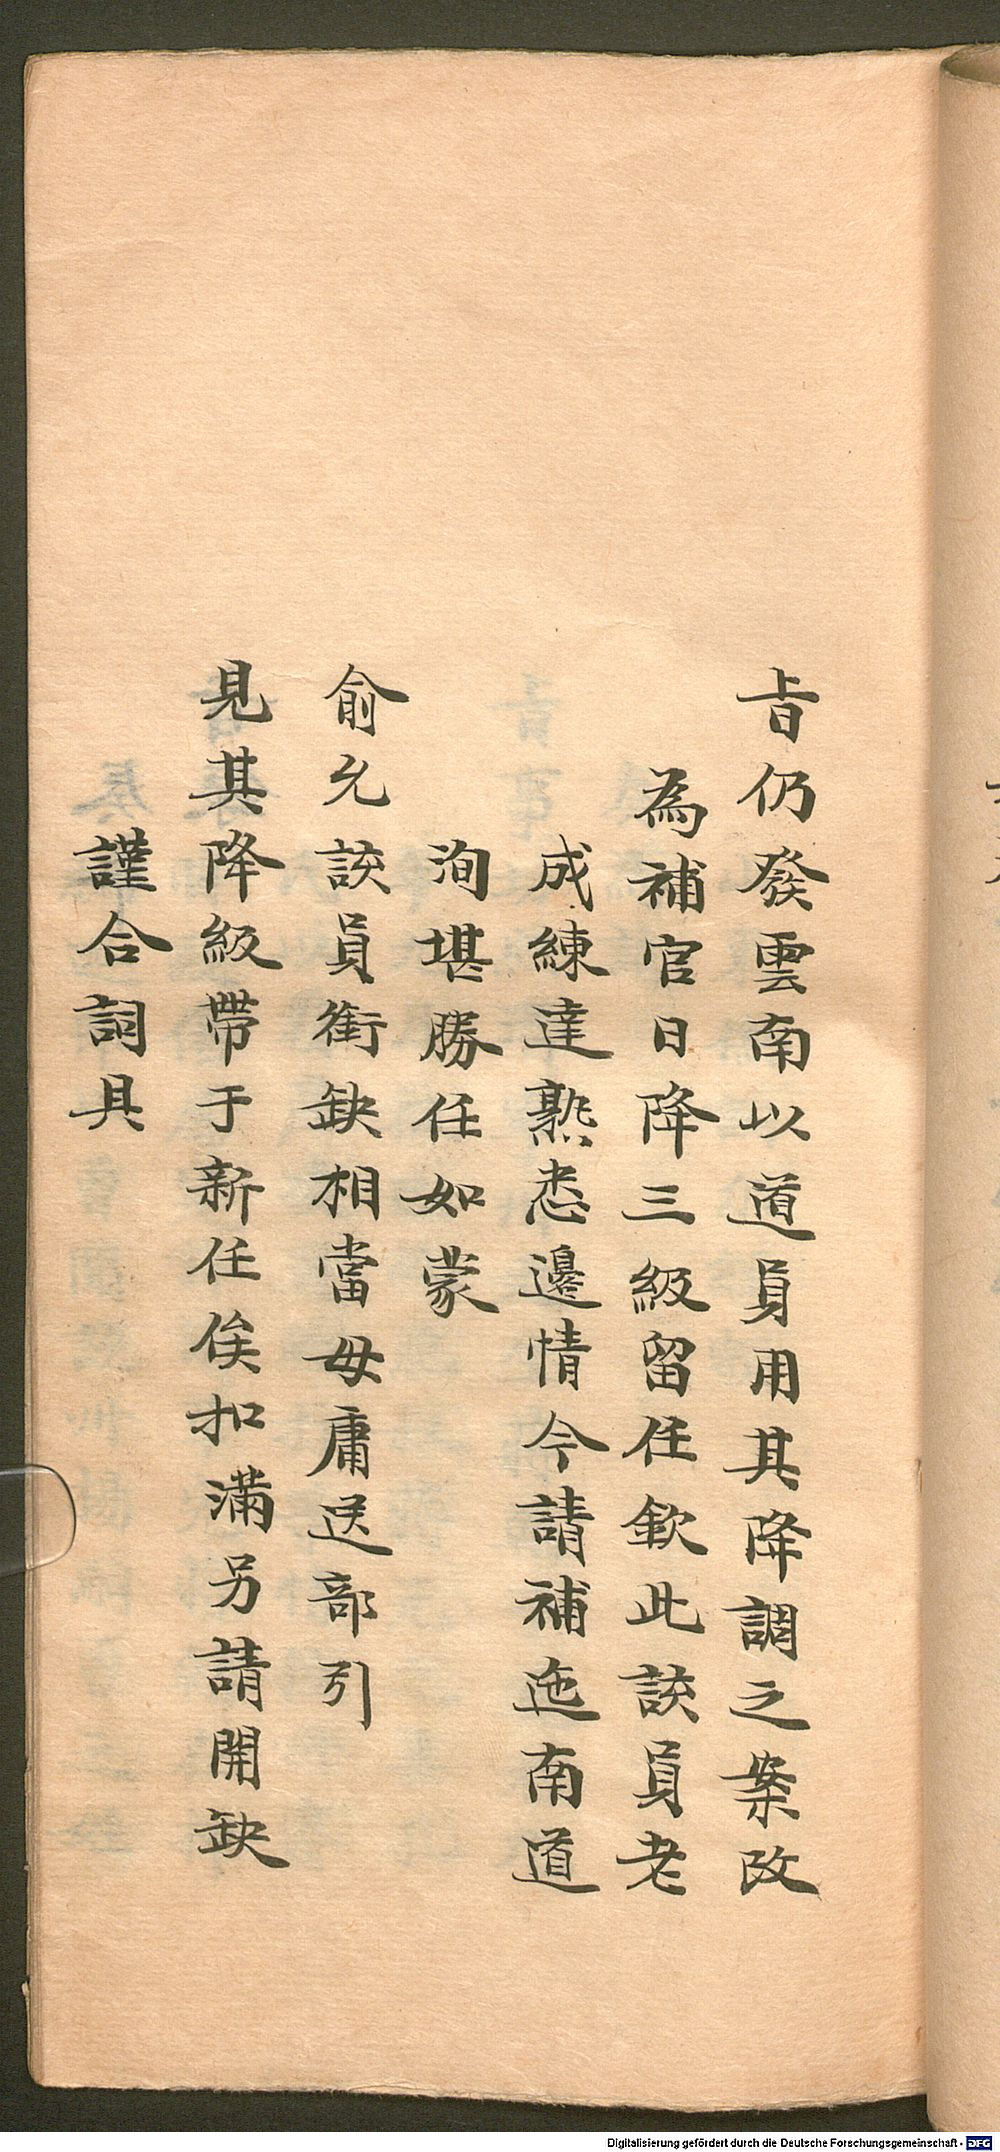 旨仍發雲南以道員用其降調之案改
為補官日降三級留任欽此該員老
成練達熟悉邊情今請補迤南道
洵堪勝任如蒙
俞允該員銜缺相當毋庸送部引
見其降級帶于新任俟扣滿另請開缺
謹合詞具
Digitalisierung gefördert durch die Deutsche Forschungsgemeinschaft - DFG